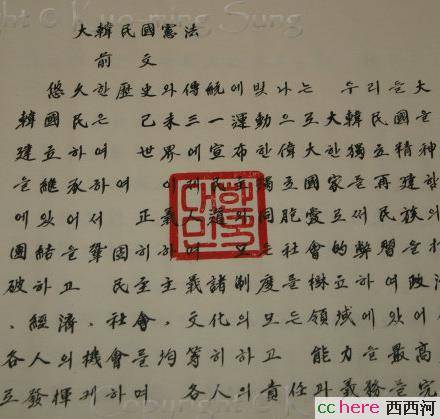 大韓民國憲法
前文
悠久한 歷史와 傳統에 빛나는 우리들 大
韓國民은 己未三一運動으로 大韓民國을
建立하여 世界에 宣布한 偉大한 獨立精神
을 繼承하여 이제 民主獨立國家를 再建함
에 있어서 正義人道와 同胞愛로써 民族의
團結을 鞏固히하며 모든 社會的 弊習을 打
破하고 民主主義諸制度를 樹立하여 政治
、經濟、社會、文化의 모든 領域에 있어서
各人의 機會를 均等히하고 能力을 最高
로 發揮케하며 各人의 責任과 義務를 完
대한민국
cchere 西西河